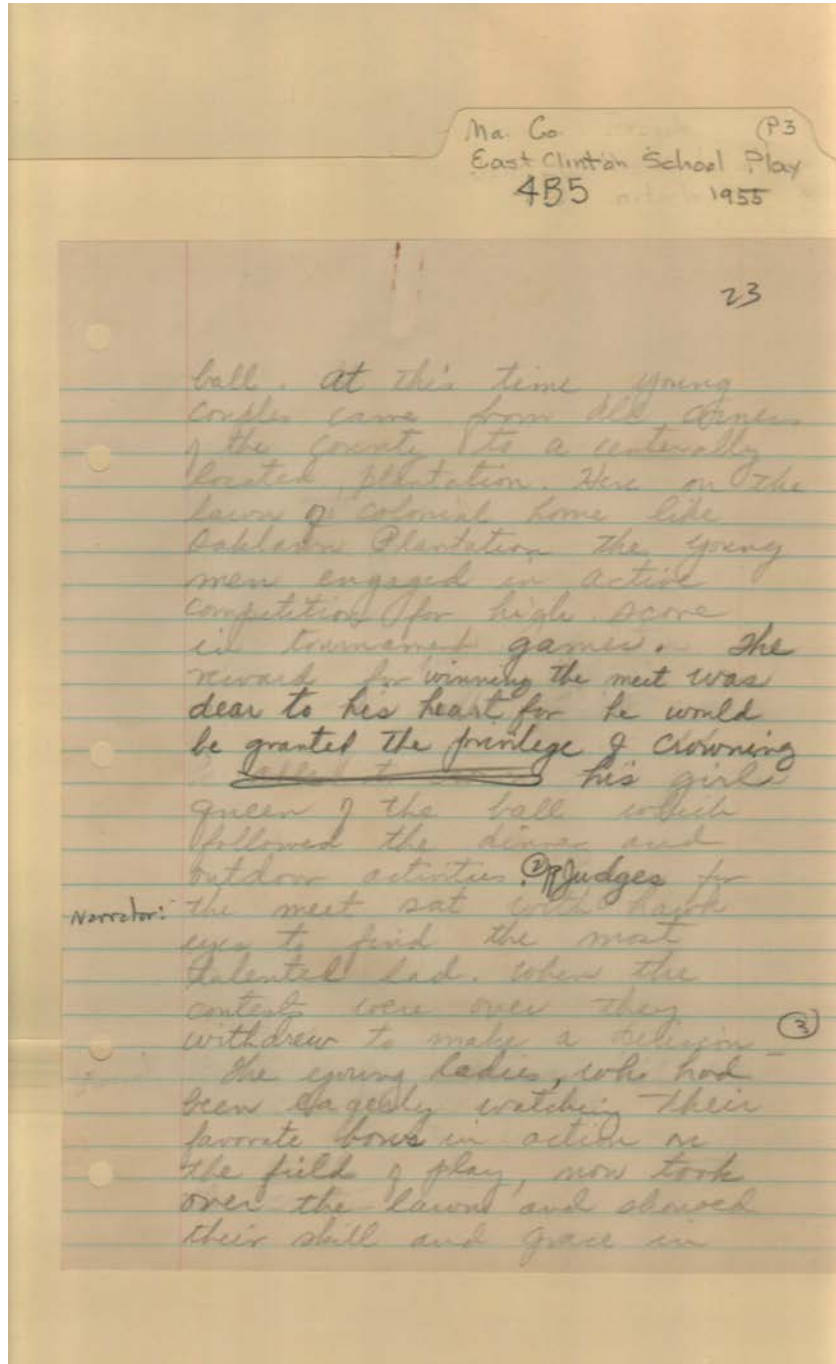 Ma. Co. (P3
East Clinton School Play
4B5 1955
23
ball. At this time young
couples came from all corners
of the county to a centerally
located plantation. Here on the
lawn of colonial home like
Oaklawn Plantation the young
men engaged in active
competition for high score
in tournament games. The
reward for winning the meet was
dear to his heart for he would
be granted the privilege of crowning
his girl
queen of the ball which
followed the dinner and
outdoor activities. (2) Judges for
Narrator: the meet sat with hawk
eyes to find the most
talented lad. When the
contests were over they
withdrew to make a decision (3)
The young ladies, who had
been eagerly watching their
favorate bows in action on
the field of play, now took
over the lawn and showed
their skill and grace in